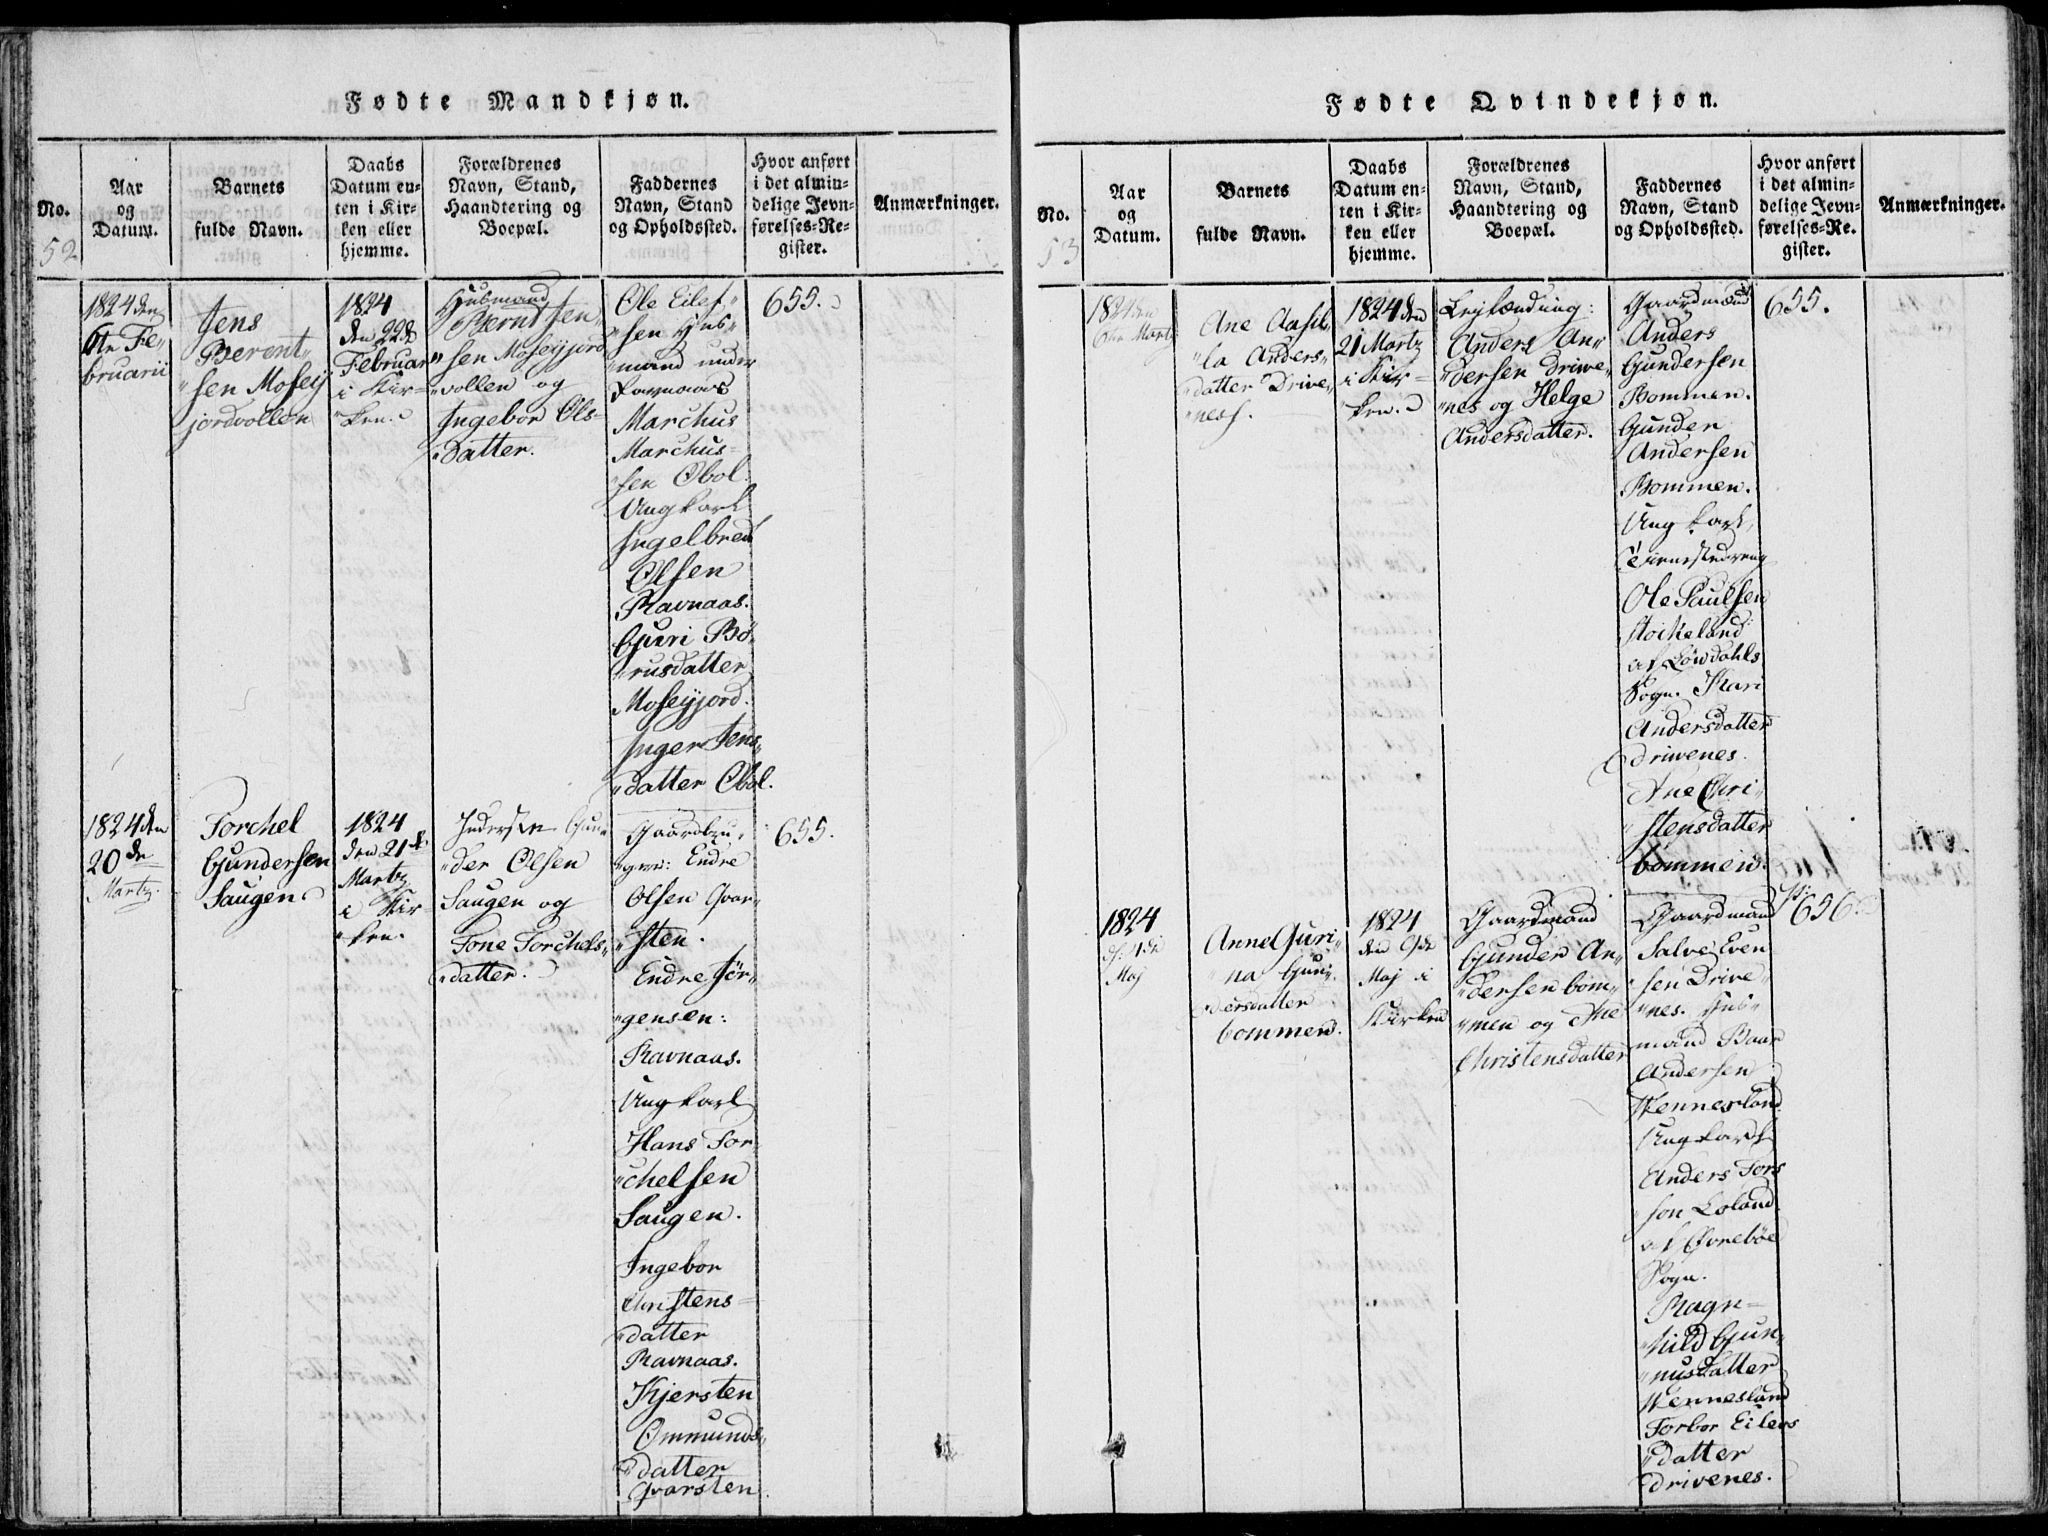 Fødte Mandkjøn.
No.
Aar
og
Datum.
Barnets
fulde Navn.
Daabs
Datum en-
ten i Kir-
ken eller
hjemme.
Forældrenes
Navn, Stand,
Haandtering og
Boepæl.
Faddernes
Navn, Stand
og Opholdssted.
Hvor anført
i det almin-
delige Jevn-
førelses-Re-
gister.
Anmærkninger.
52
1824 den
6te Fe-
bruarii
Jens
Berent-
sen Moseij
jordvollen
1824
den 22d
Februar
i Kir-
ken.
Husmand
Bernt Jen-
sen Moseyjord
vollen og
Ingebor Ols-
datter.
Ole Eilef-
sen Hus-
mand under
Ravnaas
Marchus
Marchus-
sen Obol.
Ungkarl
Ingelbret
Olsen
Ravnaas.
Guri Bö-
rusdatter
Moseyjord.
Inger Jens-
datter Obol.
655.
1824 den
20de
Martz.
Torchel
Gundersen
Saugen
1824
den 21de
Martz
i Kir-
ken.
Inderste Gun-
der Olsen
Saugen og
Tone Torchels-
datter.
Gaardbru-
gere: Endre
Olsen Qvar-
sten.
Endre Jör-
gensen:
Ravnaas.
Ungkarl
Hans Tor-
chelsen
Saugen.
Ingebor
Christens-
datter
Ravnaas.
Kjersten
Ommunds-
datter
Qvarsten.
655.
Fødte Qvindekjøn.
No.
Aar
og
Datum.
Barnets
fulde Navn.
Daabs
Datum en-
ten i Kir-
ken eller
hjemme.
Forældrenes
Navn, Stand,
Haandtering og
Boepæl.
Faddernes
Navn, Stand
og Opholdssted.
Hvor anført
i det almin-
delige Jevn-
førelses-Re-
gister.
Anmærkninger.
53
1824 den
6te Martz
Ane Aasil
la Anders-
datter Drive-
nes.
1824 den
21 Martz
i Kir-
ken.
Lejlænding:
Anders An-
dersen Drive-
nes og Helge
Andersdatter.
Gaardmænd
Anders
Gundersen
Bommen.
Gunder
Andersen
Bommen.
Ungkarl,
Tienistedreng
Ole Paulsen
Stockeland
af Løwdahls
Sogn. Kari
Andersdatter
Drivenes.
Ane Chri-
stensdatter
bommen.
655.
1824
d. 4de
Maj
Anne Guri-
na Gun-
dersdatter
bommen.
1824
den 9de
Maj i
Kirken
Gaardmand
Gunder An-
dersen bom-
men og Ane
Christensdatter
Gaardmand
Salve Even
sen Drive-
nes. Hus-
mand Baar
Andersen
Wennesland.
Ungkarl
Anders Tors
son Loland
af Øvrebøe
Sogn.
Ragn-
hild Gun-
nusdatter
Wennesland
Torbor Eilevs
datter
Drivenes.
656.